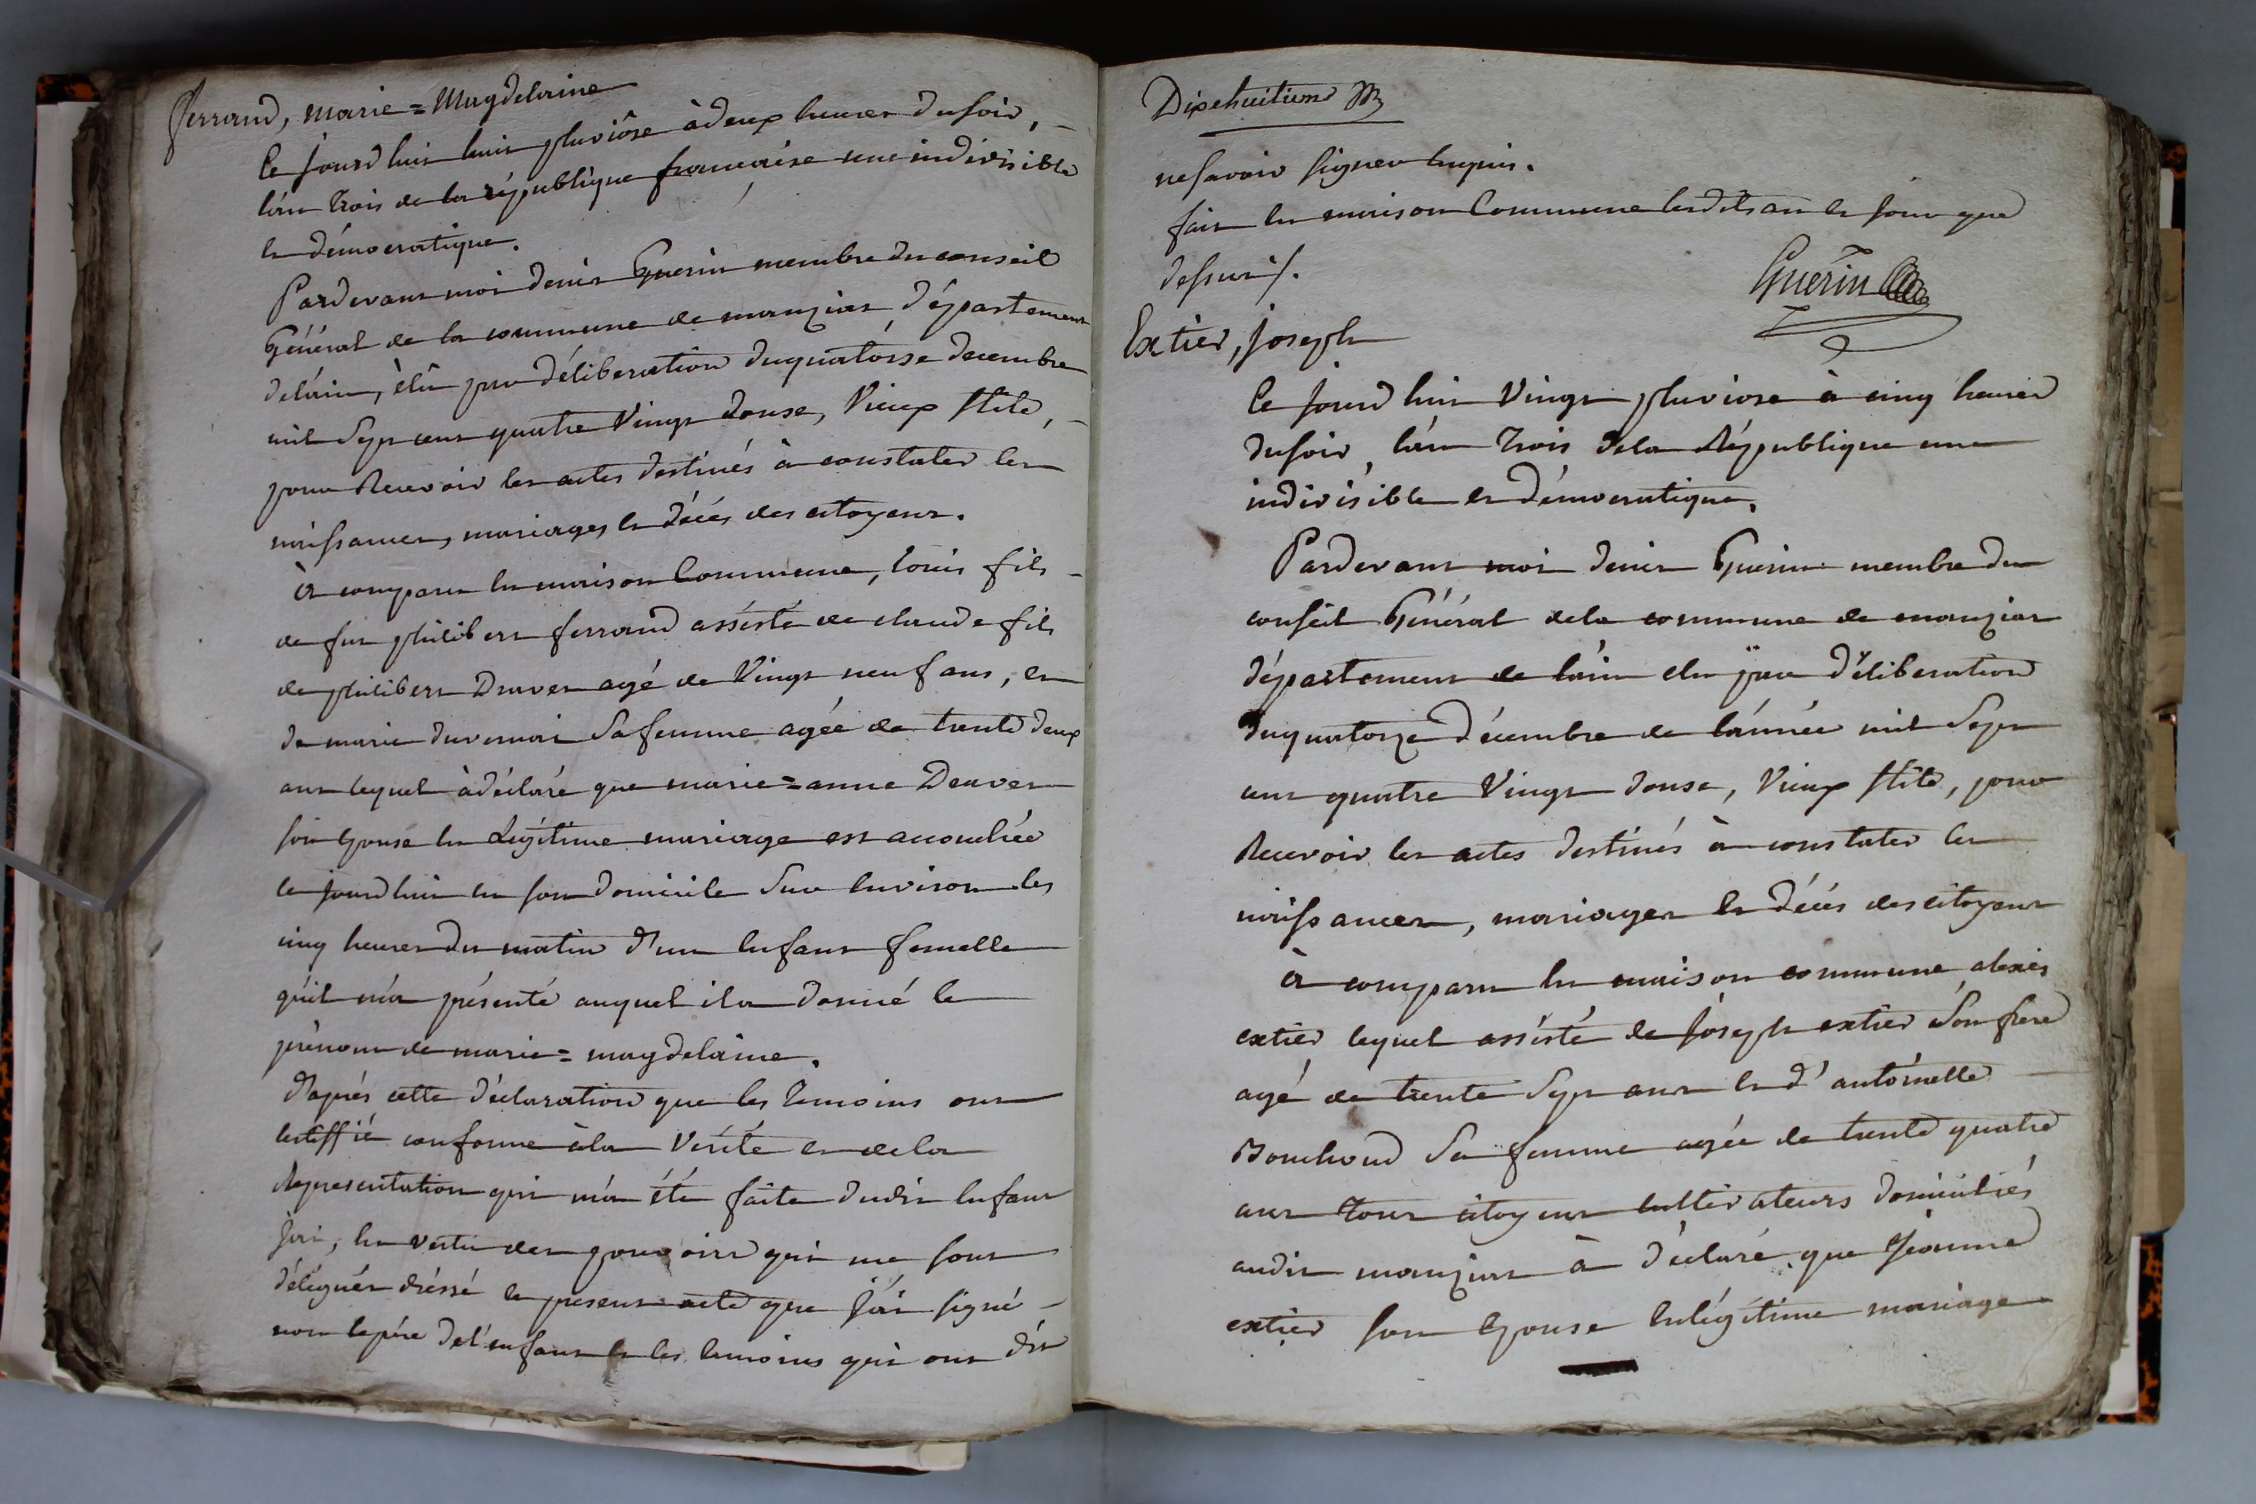 ferrand, marie=Magdelaine
Ce jourd huit huit pluviôse à deux heures du soir,
l'an trois de la république française une indivisible
et démocratique.
Pardevant moi denis Guerin membre du conseil
Général de la commune de manziat, département
de l'ain, élû par délibération du quatorse decembre
mil sept cent quatre vingt douse, vieux stile,
pour Recevoir les actes destinés à constater les
naissances, mariages et décés des citoyens.
à comparu en maison Commune, louis fils
de feu philibert ferrand assisté de claude fils
de philibert Druvent agé de vingt neuf ans, et
de marie duvernai sa femme agée de trente deux
ans lequel à déclaré que marie=anne Deuvent
son epouse en Légitime mariage est accouchée
ce jourd'hui en son domicile sur environ les
cinq heures du matin d'un enfant femelle
qu'il m'a présenté auquel il a donné le
prénom de marie=magdelaine.
D'aprés cette déclaration que les temoins ont
certiffié conforme à la vérité et de la
Representation qui m'a été faite dudit enfant
j'ai, en vertu des pouvoirs qui me sont
délégués dréssé le present acte que j'ai signé
non le pére de l'enfant et les temoins qui ont dit
Dixehuitieme
ne savoir signer enquis.
fait en maison Commune lesdits an et jour que
dessus.
Guerin
Extier, joseph
Ce jourd hui vingt pluviose à cinq heures
du soir, l'an trois de la République une
indivisible et démocratique.
Pardevant moi denis Guerin membre du
conseil Général de la commune de manziat
département de l'ain elu par délibération
du quatorze décembre de l'année mil sept
cent quatre vingt douse, vieux stile, pour
Recevoir les actes destinés à constater les
naissances, mariages et décés des citoyens
à comparu en maison commune alexis
extier lequel assisté de joseph extier son frere
agé de trente sept ans et d'antoinette
Bouchoud sa femme agée de trente quatre
ans tous citoyens cultivateurs domiciliés
audit manziat à déclaré que jeanne
extier son epouse en légitime mariage